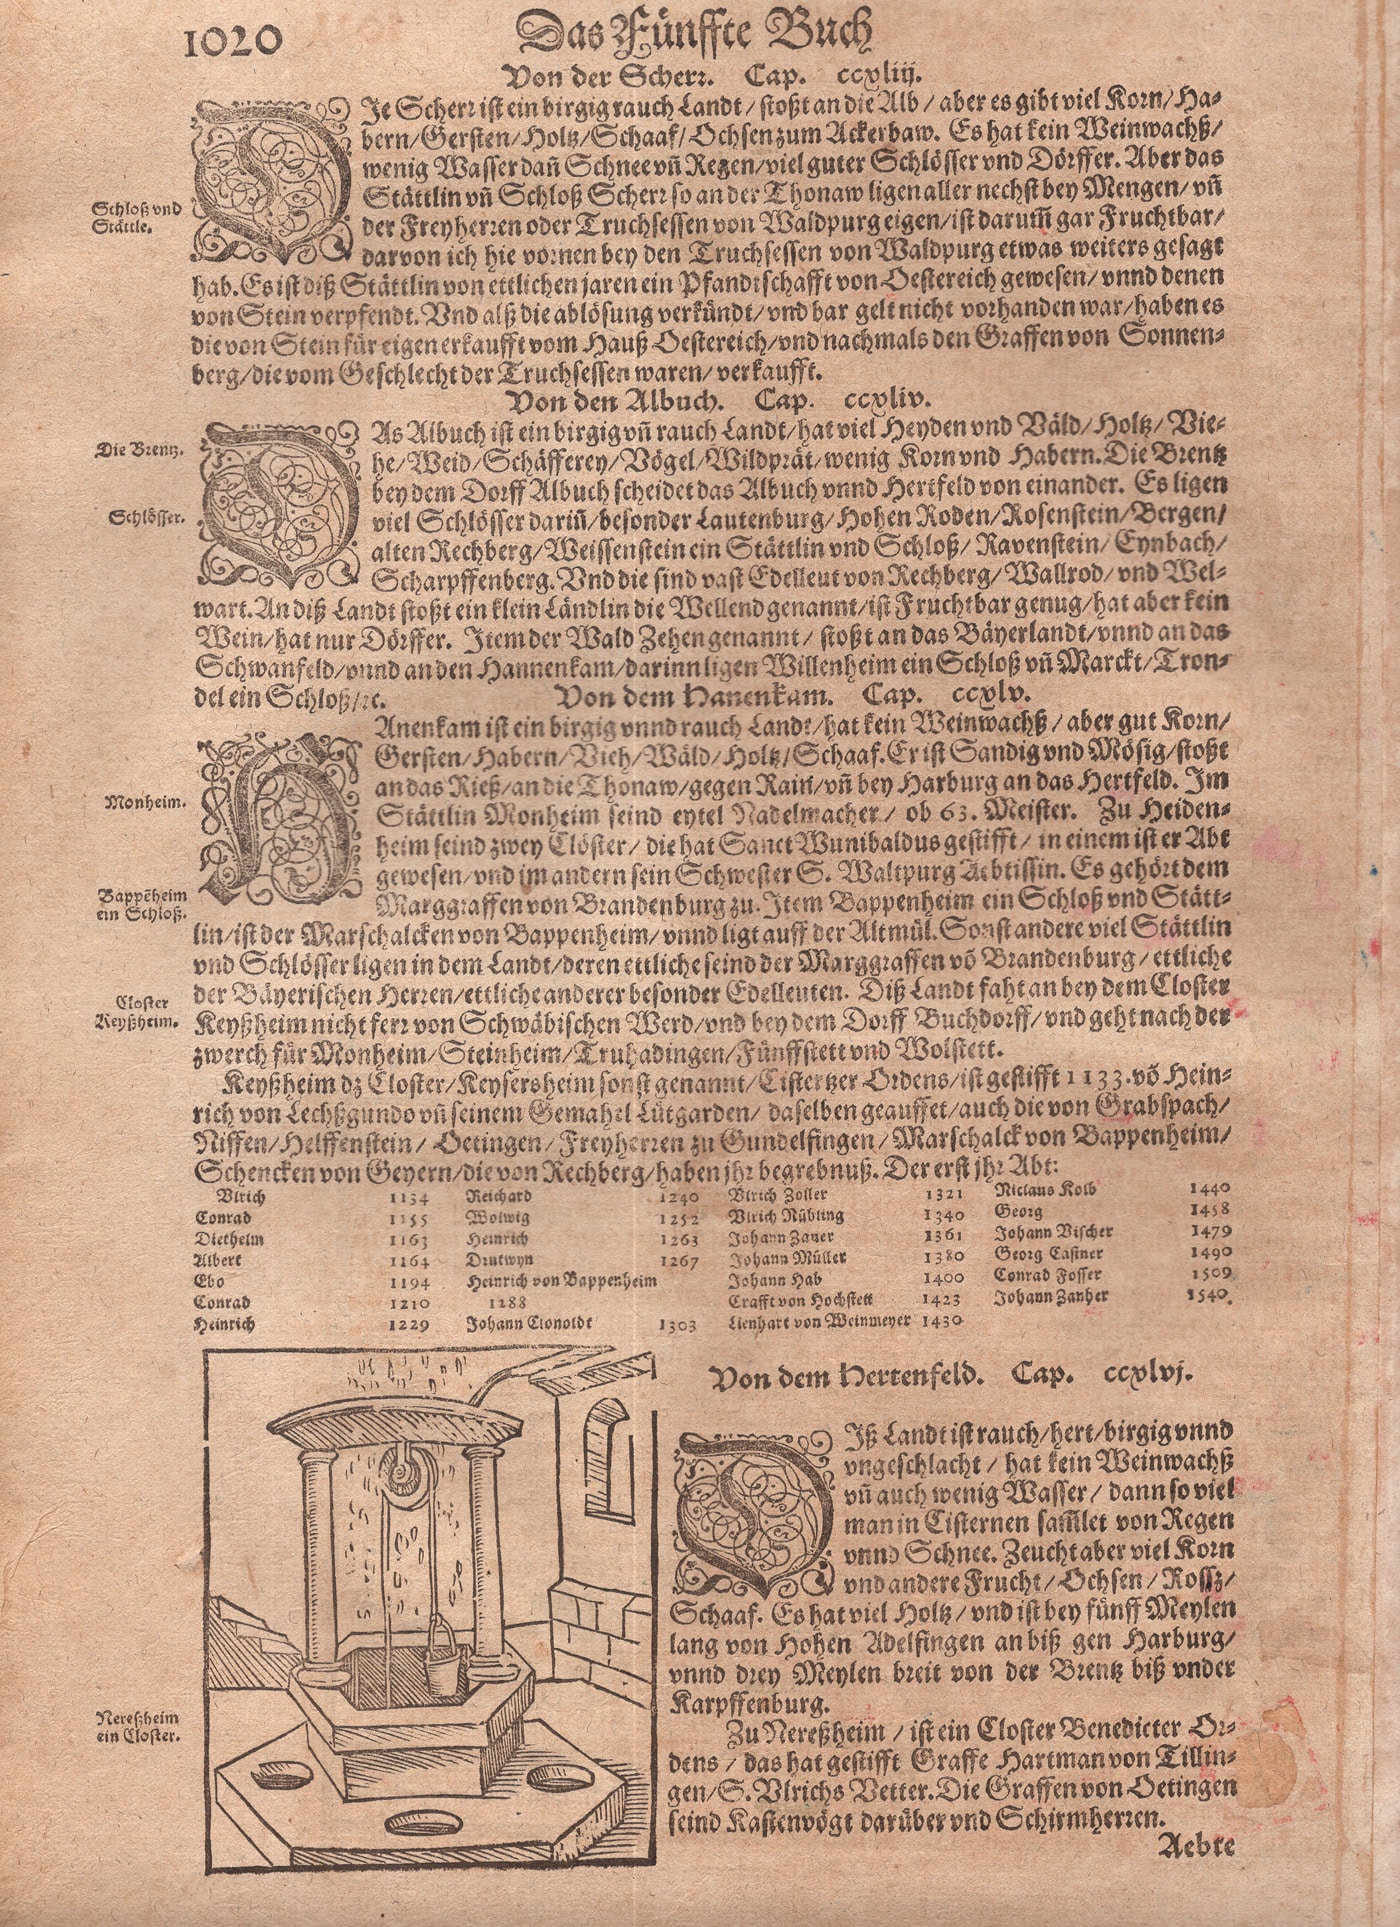 1020
Das Fünffte Buch
Von der Scherr. Cap. ccxliij.
Schloß vnd
Stättle.
DIe Scherr ist ein birgig rauch Landt / stoßt an die Alb / aber es gibt viel Korn / Ha-
bern / Gersten / Holtz / Schaaf / Ochsen zum Ackerbaw. Es hat kein Weinwachß /
wenig Wasser dañ Schnee vñ Regen / viel guter Schlösser vnd Dörffer. Aber das
Stättlin vñ Schloß Scherr so an der Thonaw ligen aller nechst bey Mengen / vñ
der Freyherren oder Truchsessen von Waldpurg eigen / ist darum̃ gar Fruchtbar /
darvon ich hie vornen bey den Truchsessen von Waldpurg etwas weiters gesagt
hab. Es ist diß Stättlin von ettlichen jaren ein Pfandtschafft von Oestereich gewesen / vnnd denen
von Stein verpfendt. Vnd alß die ablösung verkündt / vnd bar gelt nicht vorhanden war / haben es
die von Stein für eigen erkaufft vom Hauß Oestereich / vnd nachmals den Graffen von Sonnen-
berg / die vom Geschlecht der Truchsessen waren / verkaufft.
Von den Albuch. Cap. ccxliv.
Die Brentz.
Schlösser.
DAs Albuch ist ein birgig vñ rauch Landt / hat viel Heyden vnd Wäld / Holtz / Vie-
he / Weid / Schäfferey / Vögel / Wildprät / wenig Korn vnd Habern. Die Brentz
bey dem Dorff Albuch scheidet das Albuch vnnd Hertfeld von einander. Es ligen
viel Schlösser dariñ / besonder Lautenburg / Hohen Roden / Rosenstein / Bergen /
alten Rechberg / Weissenstein ein Stättlin vnd Schloß / Ravenstein / Eynbach /
Scharpffenberg. Vnd die sind vast Edelleut von Rechberg / Wallrod / vnd Wel-
wart. An diß Landt stoßt ein klein Ländlin die Wellend genannt / ist Fruchtbar genug / hat aber kein
Wein / hat nur Dörffer. Item der Wald Zehen genannt / stoßt an das Bäyerlandt / vnnd an das
Schwanfeld / vnnd an den Hannenkam / darinn ligen Willenheim ein Schloß vñ Marckt / Tron-
del ein Schloß / ꝛc.
Von dem Hanenkam. Cap. ccxlv.
Monheim.
Bappẽheim
ein Schloß.
Closter
Keyßheim.
HAnenkam ist ein birgig vnnd rauch Landt / hat kein Weinwachß / aber gut Korn /
Gersten / Habern / Vich / Wäld / Holtz / Schaaf. Er ist Sandig vnd Mösig / stoßt
an das Rieß / an die Thonaw / gegen Rain / vñ bey Harburg an das Hertfeld. Im
Stättlin Monheim seind eytel Nadelmacher / ob 63. Meister. Zu Heiden-
heim seind zwey Clöster / die hat Sanct Wunibaldus gestifft / in einem ist er Abt
gewesen / vnd im andern sein Schwester S. Waltpurg Aebtissin. Es gehört dem
Marggraffen von Brandenburg zu. Item Bappenheim ein Schloß vnd Stätt-
lin / ist der Marschalcken von Bappenheim / vnnd ligt auff der Altmül. Sonst andere viel Stättlin
vnd Schlösser ligen in dem Landt / deren ettliche seind der Marggraffen võ Brandenburg / ettliche
der Bäyerischen Herren / ettliche anderer besonder Edelleuten. Diß Landt faht an bey dem Closter
Keyßheim nicht ferr von Schwäbischen Werd / vnd bey dem Dorff Buchdorff / vnd geht nach der
zwerch für Monheim / Steinheim / Truhadingen / Fünffstett vnd Wolstett.
Keyßheim dz Closter / Keysersheim sonst genannt / Cistertzer Ordens / ist gestifft 1133. võ Hein-
rich von Lechßgundo vñ seinem Gemahel Lütgarden / daselben geauffet / auch die von Grabspach /
Niffen / Helffenstein / Oetingen / Freyherren zu Gundelfingen / Marschalck von Bappenheim /
Schencken von Geyern / die von Rechberg / haben jhr begrebnuß. Der erst jhr Abt:
Vlrich 1134 Reichard 1240 Vlrich Zoller 1321 Niclaus Kolb 1440
Conrad 1155 Wolwig 1252 Vlrich Nübling 1340 Georg 1458
Diethelm 1163 Heinrich 1263 Johann Zauer 1361 Johann Vischer 1479
Albert 1164 Drutwyn 1267 Johann Müller 1380 Georg Castner 1490
Ebo 1194 Heinrich von Bappenheim Johann Hab 1400 Conrad Fosser 1509
Conrad 1210 1288 Crafft von Hochstett 1423 Johann Zanher 1540.
Heinrich 1229 Johann Clonoldt 1303 Lienhart von Weinmeyer 1430
Von dem Hertenfeld. Cap. ccxlvj.
DIß Landt ist rauch / hert / birgig vnnd
vngeschlacht / hat kein Weinwachß
vñ auch wenig Wasser / dann so viel
man in Cisternen sam̃let von Regen
vnnd Schnee. Zeucht aber viel Korn
vnd andere Frucht / Ochsen / Rossz /
Schaaf. Es hat viel Holtz / vnd ist bey fünff Meylen
lang von Hohen Adelfingen an biß gen Harburg /
vnnd drey Meylen breit von der Brentz biß vnder
Karpffenburg.
Nereßheim
ein Closter.
Zu Nereßheim / ist ein Closter Benedicter Or-
dens / das hat gestifft Graffe Hartman von Tillin-
gen / S. Vlrichs Vetter. Die Graffen von Oetingen
seind Kastenvögt darüber vnd Schirmherren.
Aebte